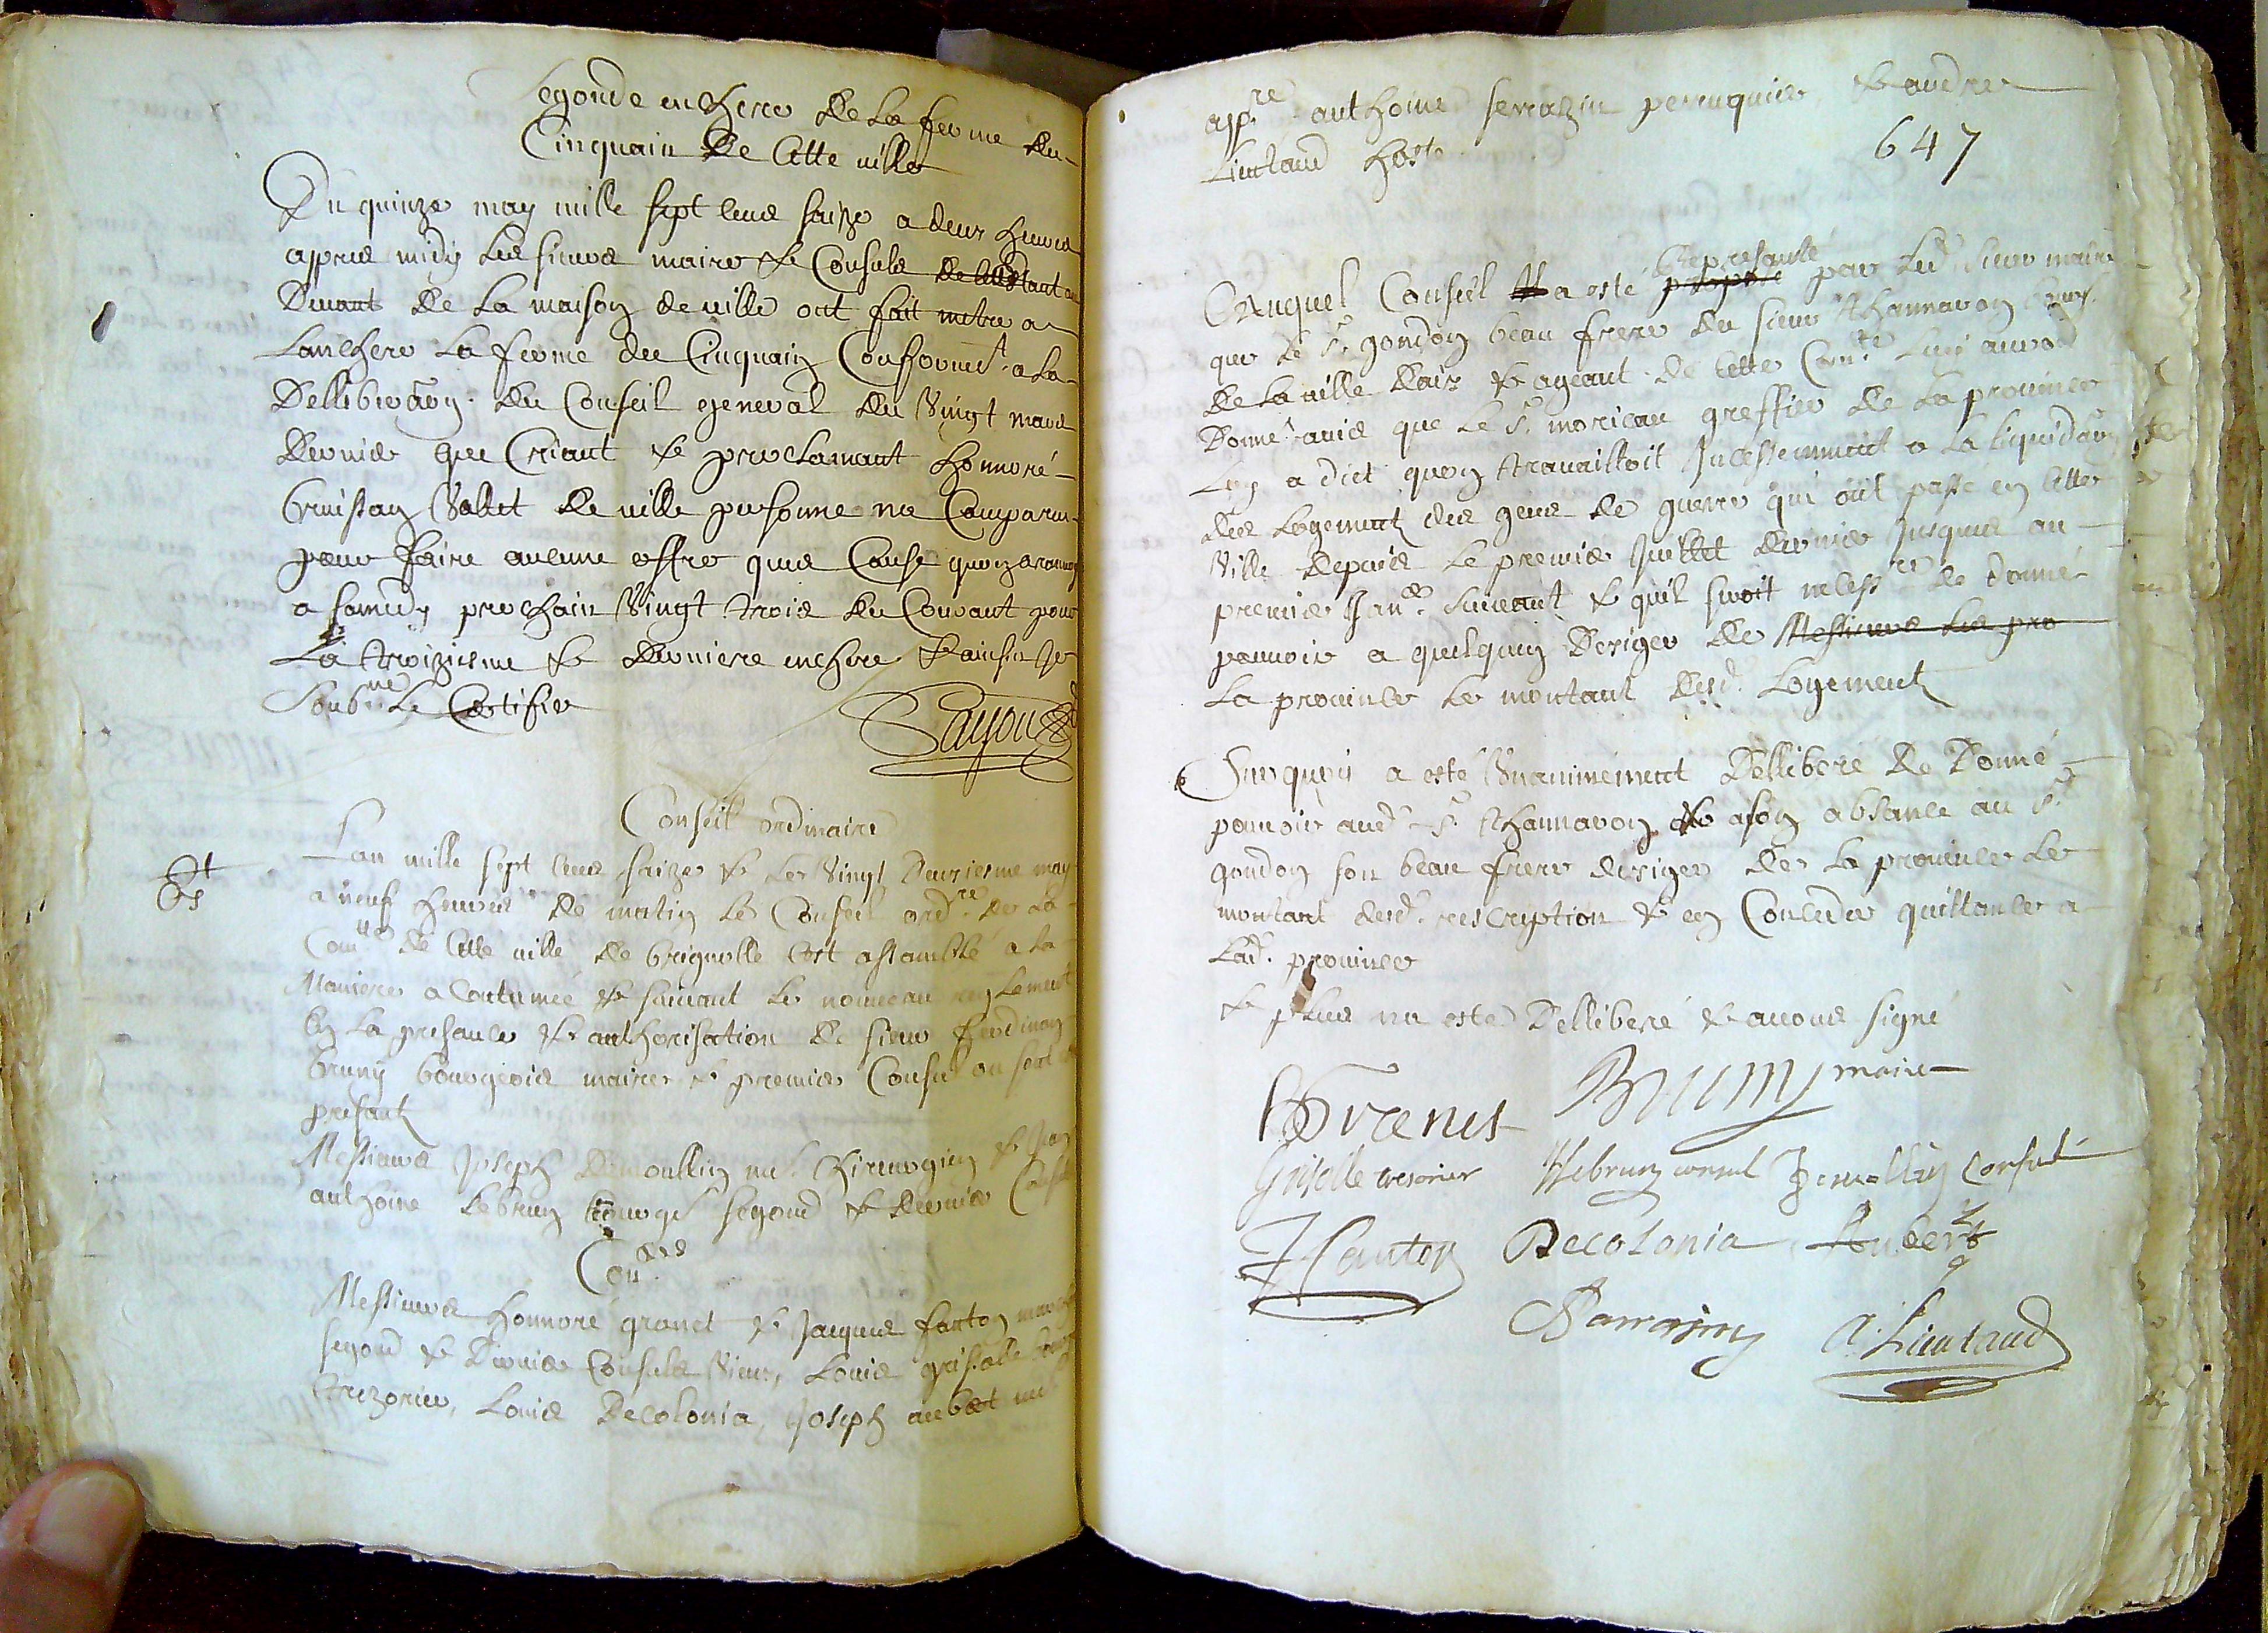 Segonde enchere de la ferme du
Cinquain de Cette ville
Du quinze may mille sept cens saize a deux heures
appres midy les sieurs maire et Consuls
Devant de la maison de ville ont fait metre a
Lanchere La ferme du Cinquain Conformet. a La
Delliberaôn. du Conseil general du vingt mars
dernier que Criant et proclamant honnoré
bruissan Vallet de ville personne na Comparu
pour faire aucune offre que Cause quon
a samedy prochain Vingt trois du Courant pour
La troiziesme et derniere enchere et ainsin Je
Soubné Le Certifie
Conseil ordinaire
Lan mille sept cens saize et le vingt deuxiesme may
a neuf heures de matin le Conseil ordre de La
Comté de Cette ville de brignolle cest assamblé a la
Maniere acoutumée et suivant le nouveau reglement
En La presance et authorisation de sieur ferdinan
bruny bourgeois maire et premier Consul ou sont
presant
Messieurs Joseph Demoullin me. Chirurgien et Jean
anthoine Lebrun bourgs segond et dernier Consuls
Coners
Messieurs honnoré granet et Jacques fanton
segond et dernier Consuls vieux, Louis griselle
trezorier, Louis Decolonia, Joseph aubert
appre anthoine serrazin peruquier et andre
Lieutaud hoste
647
Represanté
Auquel Conseil a esté par Led. sieur maire
que Le Sr. gondon beau frere du sieur Thannaron
de La ville daix et ageant de Cette Comté Luy auroit
Donné avis que Le Sr. moricau greffier de La province
Luy a dict quon travailloit Incessemment a La liquidaôn
des Logement des gens de guerre qui ont passé en Cette
Ville depuis Le premier Juillet dernier Jusques au
premier Janer. suivant et quil seroit necesre de donné
pouvoir a quelquun Dexiger de Messieurs Les pro
La province Le montant desd. Logement
Surquoy a esté Unanimement Delliberé de Donné
pouvoir aud. Sr. Thannaron et a son absance au Sr.
gondon son beau frere dexiger de La province Le
montant desd. rescription et en Conceder quittance a
Lad. province
et plus na esté Delliberé et avons signé
Bruny maire
Griselle tresorier Lebrun consul Demollin Consul
Decolonia Aubert
A. Lieutaud